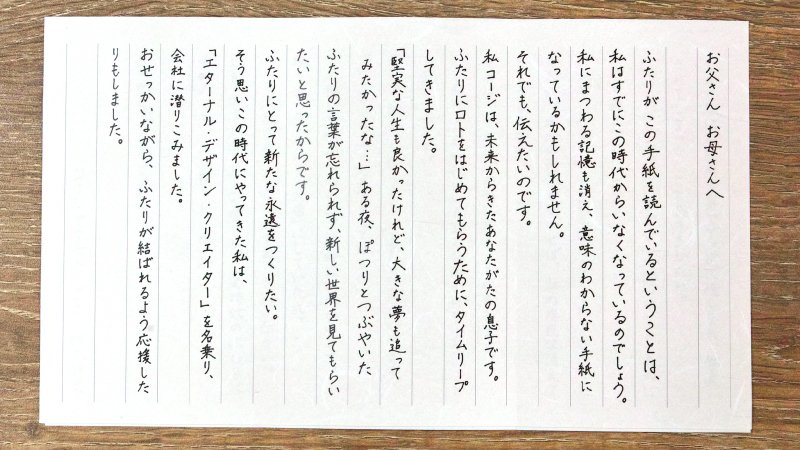 お父さん　お母さんへ
ふたりが この手紙を読んでいるということは、
私はすでにこの時代からいなくなっているのでしょう。
私にまつわる記憶も消え、意味のわからない手紙に
なっているかもしれません。
それでも、伝えたいのです。
私コージは、未来からきたあなたがたの息子です。
ふたりにロトをはじめてもらうために、タイムリープ
してきました。
「堅実な人生も良かったけれど、大きな夢も追って
みたかったな…」ある夜、ぽつりとつぶやいた
ふたりの言葉が忘れられず、新しい世界を見てもらい
たいと思ったからです。
ふたりにとって新たな永遠をつくりたい。
そう思いこの時代にやってきた私は、
「エターナル・デザイン・クリエイター」を名乗り、
会社に潜りこみました。
おせっかいながら、ふたりが結ばれるよう応援した
りもしました。